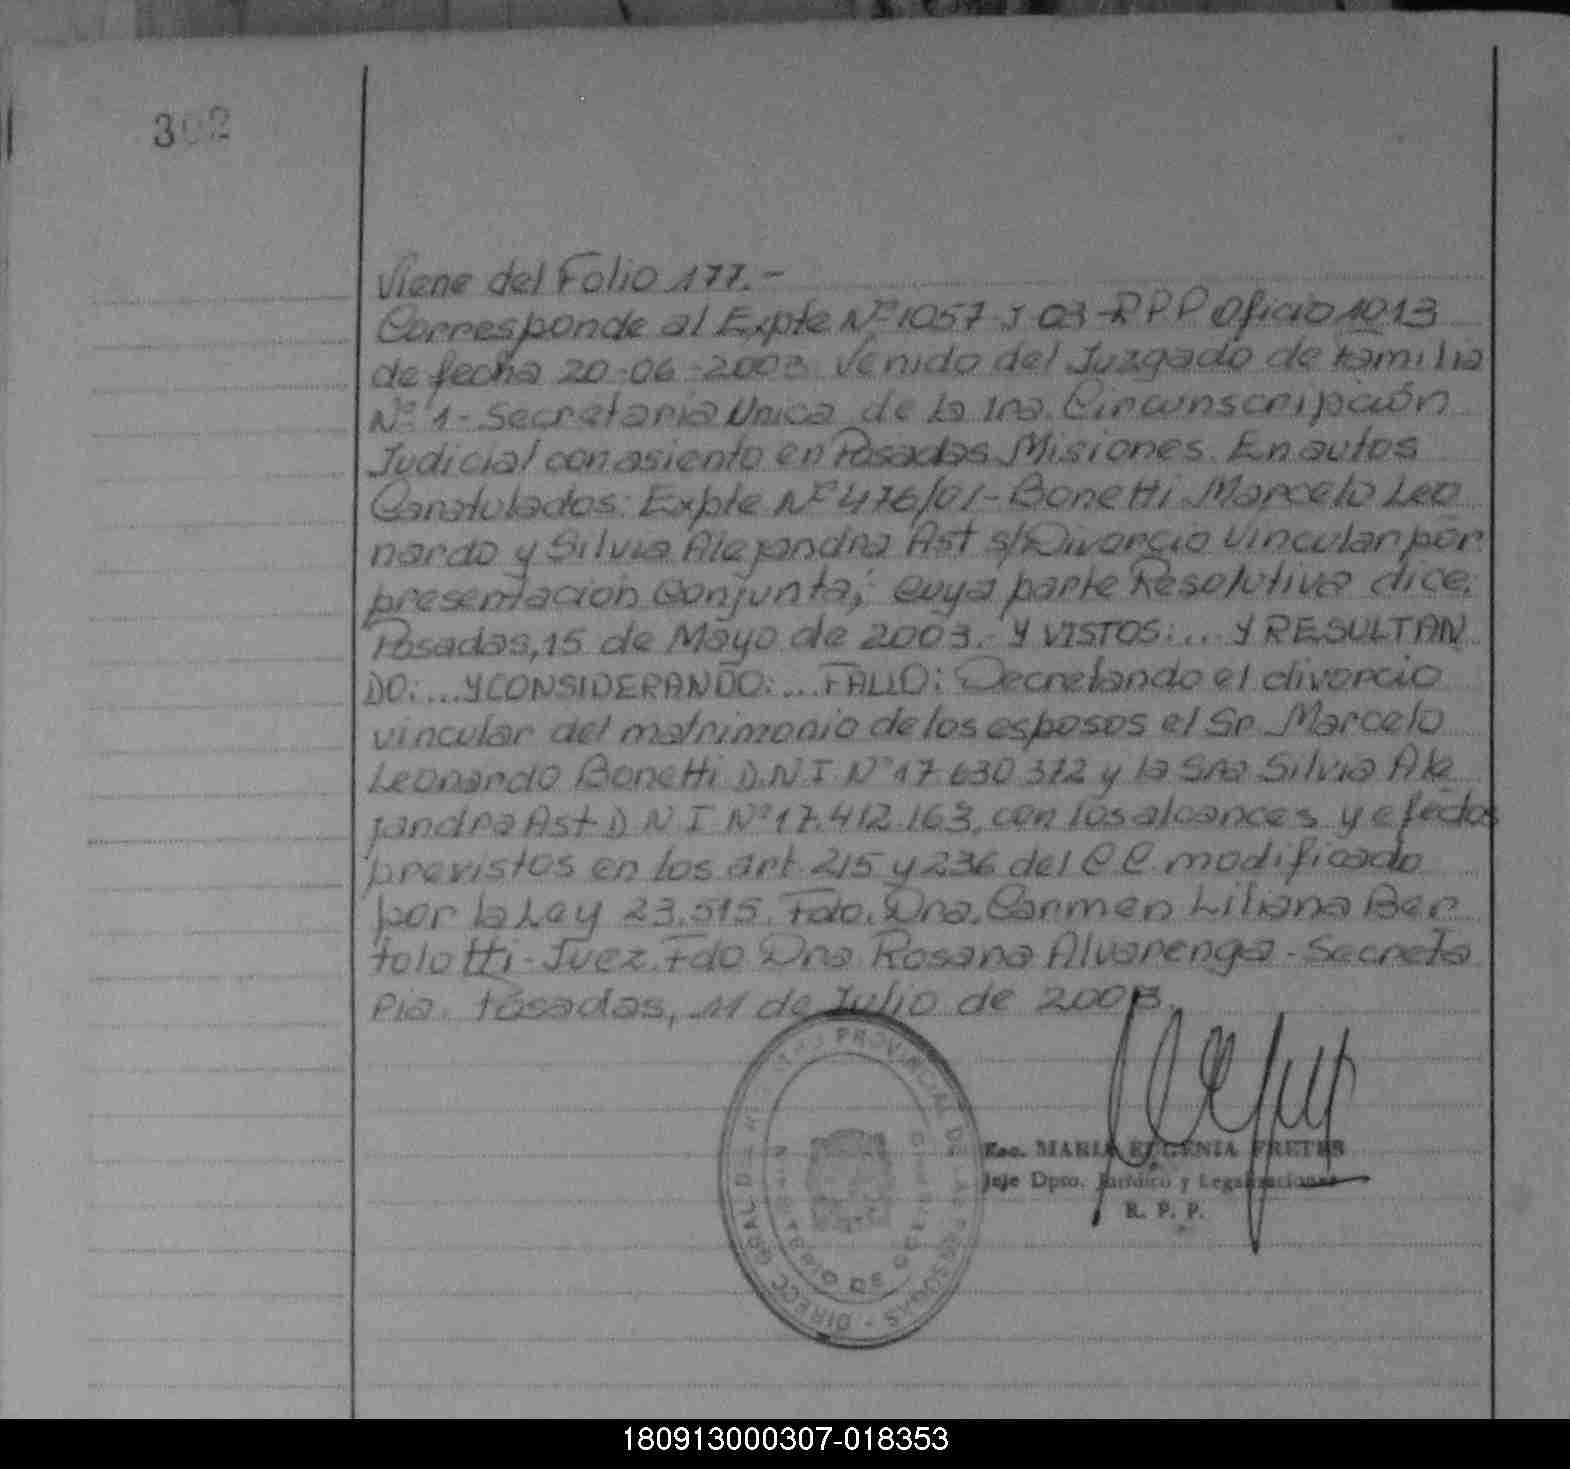 302
Viene del Folio 177.-
Corresponde al Expte Nº 1057 J 03-RPP Oficio 1013
de fecha 20-06-2003 Venido del Juzgado de Familia
Nº 1- Secretaria Unica de la 1ra. Circunscripción
Judicial con asiento en Posadas Misiones. En autos
Caratulados: Expte Nº 476/01- Bonetti Marcelo Leo
nardo y Silvia Alejandra Ast s/Divorcio Vincular por
presentación Conjunta; cuya parte Resolutiva dice:
Posadas, 15 de Mayo de 2003.- Y VISTOS:... Y RESULTAN
DO:... Y CONSIDERANDO:... FALLO: Decretando el divorcio
vincular del matrimonio de los esposos el Sr. Marcelo
Leonardo Bonetti D.N.I Nº 17.630.372 y la Sra Silvia Ale
jandra Ast D N I Nº 17.412.163, con los alcances y efectos
previstos en los art. 215 y 236 del C.C. modificado
por la Ley 23.515. Fdo. Dra. Carmen Liliana Ber
tolotti-Juez. Fdo Dra. Rosana Alvarenga-Secreta
ria. Posadas, 11 de Julio de 2003.
DIRECC GRAL DE REGISTRO PROVINCIAL DE LAS PERSONAS
MINISTERIO DE GOBIERNO
Esc. MARIA EUGENIA FRETES
Jefe Dpto. Jurídico y Legalizaciones
R. P. P.
180913000307-018353